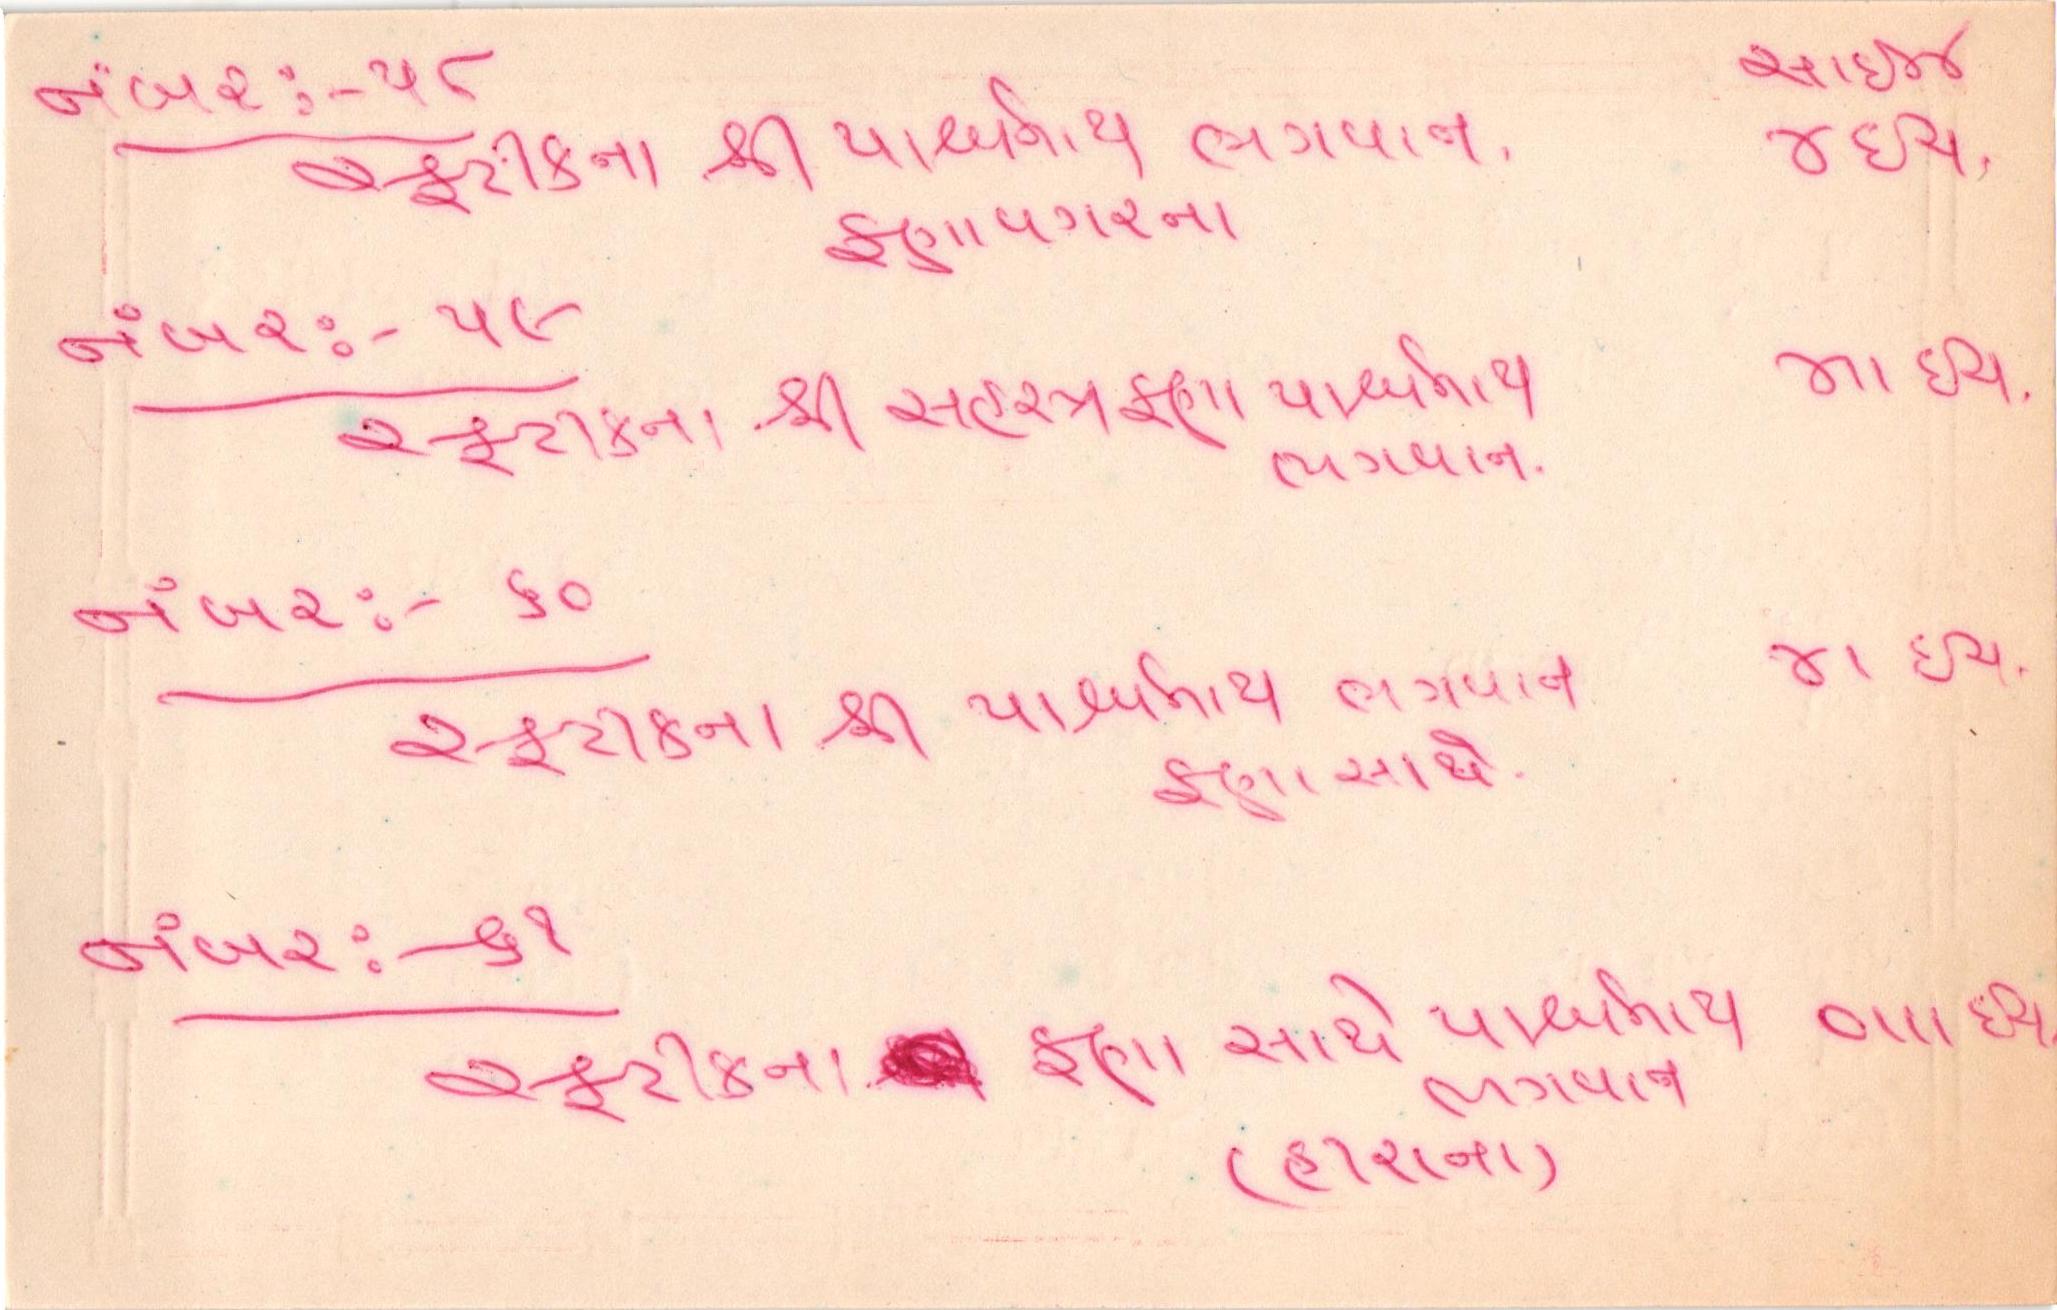 નંબર:- ૫૮
સાઇજ
સ્ફટીકના શ્રી પાર્શ્વનાથ ભગવાન.
૪ ઇંચ.
ફણા વગરના
નંબર:- ૫૯
સ્ફટીકના શ્રી સહસ્ત્રફણા પાર્શ્વનાથ
૪ાા ઇંચ.
ભગવાન.
નંબર:- ૬૦
સ્ફટીકના શ્રી પાર્શ્વનાથ ભગવાન
૪ા ઇંચ.
ફણા સાથે.
નંબર:- ૬૧
સ્ફટીકના ફણા સાથે પાર્શ્વનાથ ૦ાાા ઇંચ.
ભગવાન
(હીરાના)